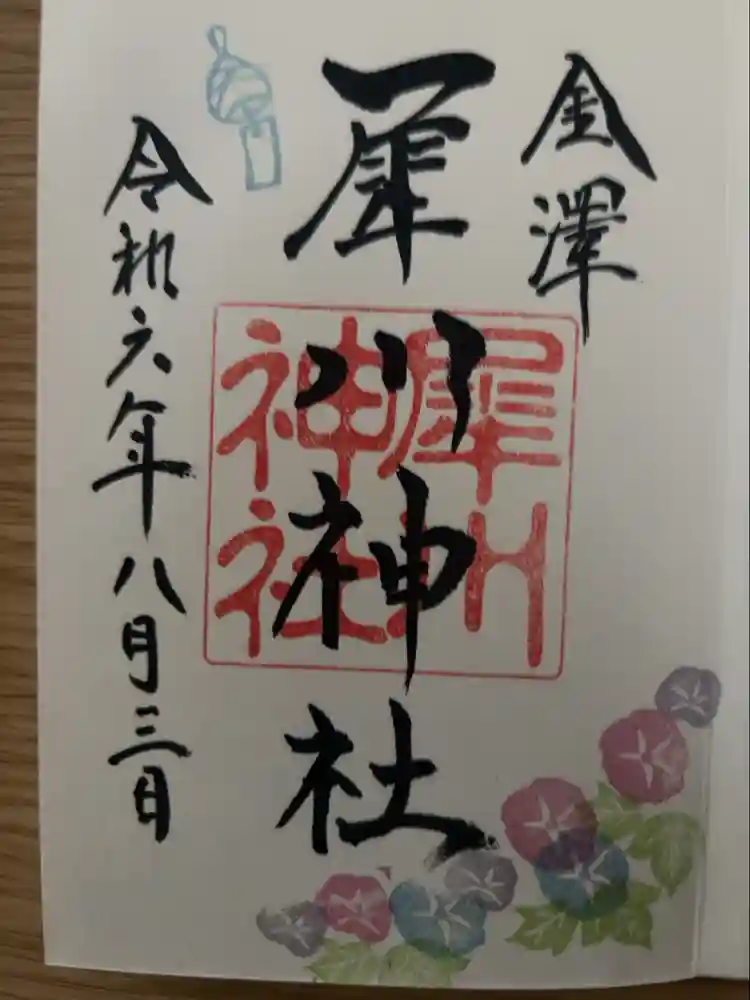 金澤
犀川神社
令和六年八月三日
犀川
神社